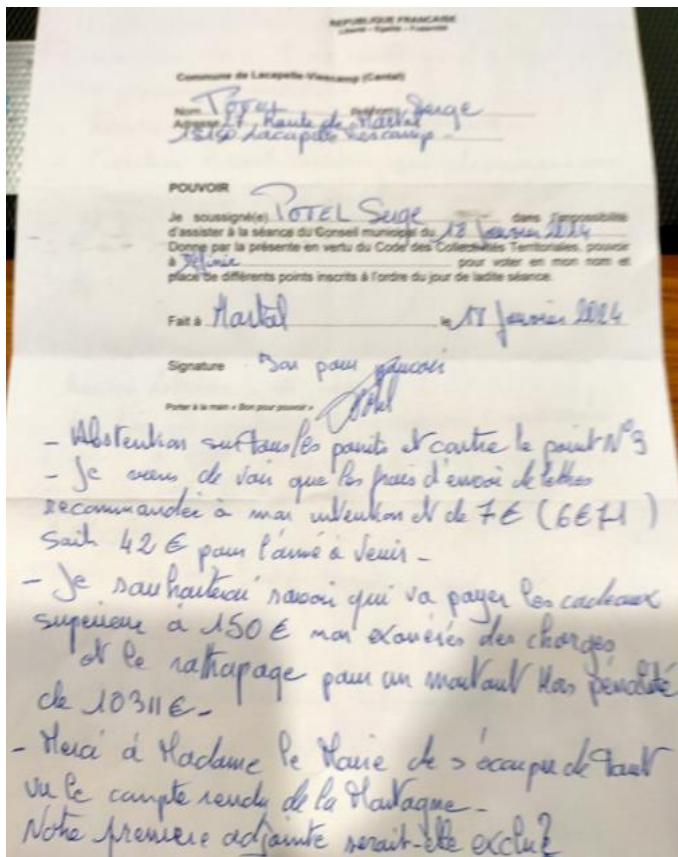 REPUBLIQUE FRANCAISE
Liberté - Egalité - Fraternité
Commune de Lacapelle-Viescamp (Cantal)
Nom POTEL Prénom Serge
Adresse 27 Route de Martal
15150 Lacapelle Viescamp -
POUVOIR
Je soussigné(e) POTEL Serge dans l'impossibilité
d'assister à la séance du Conseil municipal du 18 Janvier 2024
Donne par la présente en vertu du Code des Collectivités Territoriales, pouvoir
à pour voter en mon nom et
place de différents points inscrits à l'ordre du jour de ladite séance.
Fait à Martal le 17 Janvier 2024
Signature Bon pour pouvoir
Porter à la main « Bon pour pouvoir » Potel
- Abstention sur tous les points et contre le point N°3
- Je viens de voir que les frais d'envoi de lettres
recommandée à mon intention et de 7€ (6€71)
Soit 42€ pour l'année à venir -
- Je souhaiterai savoir qui va payer les cadeaux
supérieure à 150€ non exonérés des charges
et le rattrapage pour un montant Hors pénalité
de 10311€ -
- Merci à Madame le Maire de s'occuper de tout
vu le compte rendu de la Montagne -
Notre première adjointe serait-elle exclu?